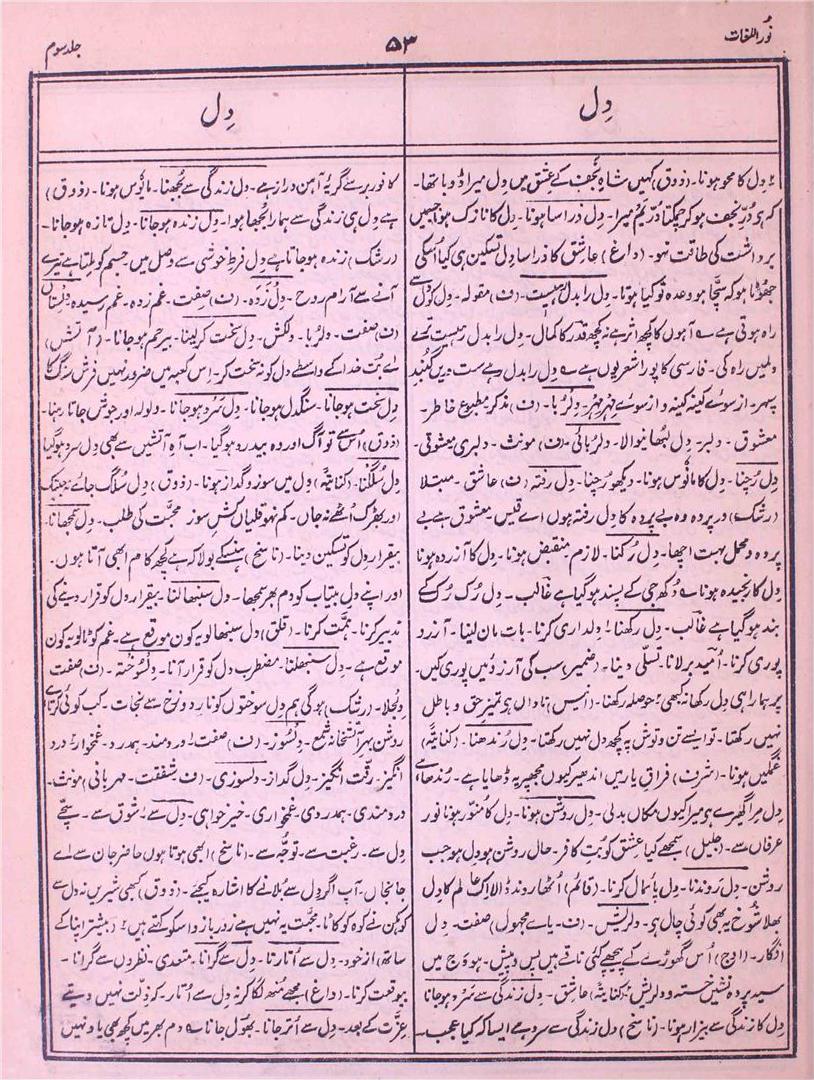 نُور اللغات
۵۳
جلد سوم
دِل
۲ دِل کا محو ہونا۔ (ذوق) کہیں شاہِ نجف کے عشق میں دِل میرا ڈوبا تھا۔
کہ ہی دُرِّ نجف ہو کر چمکتا دُرِّ یتیم میرا۔ دِل ذرا سا ہونا۔ دِل کا نازک ہونا جسمیں
برداشت کی طاقت نہو۔ (داغ) عاشق کا ذرا سا دِل تسکین ہی کیا اُسکی
جھوٹا ہو کہ سچّا ہو وعدہ تو کیا ہوتا۔ دِل را بدل رہیست۔ (ف) مقولہ۔ دِل کو دل سے
راہ ہوتی ہے ؎ آہوں کا کچھ اثر ہے نہ کچھ قدر کا کمال۔ دِل را بدل رہیست ترے
دلمیں راہ کی۔ فارسی کا پورا شعر یوں ہے ؎ دِل را بدل رہے ست دریں گنبدِ
سپہر۔ از سوئے کینہ کینہ و از سوئے مہر مہر۔ دِلرُبا۔ (ف) مذکر مطبوعِ خاطر۔
معشوق ۔ دلبر۔ دِل لبھانیوالا۔ دلرُبائی۔ (ف) مونث۔ دلبری معشوقی۔
دِل رَچنا۔ دِل کا مانوس ہونا۔ دیکھو رَچنا۔ دِل رفتہ (ف) عاشق ۔ مبتلا
(رشک) در پردہ وہ بے پردہ کا دِل رفتہ ہوں اے قیس۔ معشوق ہے بے
پردہ و محمل بہت اچھا۔ دِل رُکنا۔ لازم منقبض ہونا۔ دِل کا آزردہ ہونا
دِل کا رنجیدہ ہونا ؎ دُکھ جی کے پسند ہو گیا ہے غالب ۔ دِل رُک رُک کے
بند ہو گیا ہے غالب۔ دِل رکھنا۔ ۱ دلداری کرنا۔ بات مان لینا۔ آرزو
پوری کرنا۔ اُمید بر لانا۔ تسلّی دینا۔ (ضمیر) سب کی آرزوئیں پوری کیں۔
پر ہمارا ہی دِل رکھا نہ کبھی ۲ حوصلہ رکھنا۔ (انیس) ناداں ہو تمیزِ حق و باطل
نہیں رکھتا۔ تو ایسے تن و توش پہ کچھ دل نہیں رکھتا۔ دِل رُندھنا۔ (کنایتہً)
غمگیں ہونا۔ (شرف) فراقِ یار میں اندھیر کیوں مجھپر یہ ڈھایا ہے۔ رُندھا ہے
دِل مرا گھر ہے میرا کیوں مکاں بدلی۔ دِل روشن ہونا۔ دِل کا منوّر ہونا نورِ
عرفاں سے۔ (جلیل) سمجھے کیا عشق کو بُت کافر۔ حال روشن ہو دِل ہو جب
روشن۔ دِل رَوندنا۔ دِل پائمال کرنا۔ (قائم) اُٹھا روند ڈالا اک عالم کا دِل
بھلا شوخ یہ بھی کوئی چال ہو۔ دلریش۔ (ف۔ یائے مجہول) صفت۔ دِل
افگار۔ (اوج) اُس گھوڑے کے پیچھے کئی ناقے ہیں پس و پیش۔ ہودَج میں
سیہ پردہ نشیں خستہ و دلریش ۲ (کنایتہً) عاشق ۔ دِل زندگی سے سَرد ہو جانا
دِل کا زندگی سے بیزار ہونا۔ (ناسخ) دل زندگی سے سرد ہے ایسا کہ کیا عجب۔
دِل
کافور برسے گر یۂ آہن دراز ہے۔ دل زندگی سے اُلجھنا۔ مانوس ہونا۔ (ذوق)
ہے دِل ہی زندگی سے ہمارا اُلجھا ہوا۔ دِل زندہ ہو جانا۔ دِل تازہ ہو جانا۔
(رشک) زندہ ہو جاتا ہے دِل فرطِ خوشی سے وصل میں۔ جسم کو ملتا ہے تیرے
آنے سے آرامِ روح ۔ دِل زَدہ۔ (ف) صفت۔ غم زدہ۔ غم رسیدہ۔ دلستاں
(ف) صفت۔ دلرُبا۔ دلکش۔ دِل سخت کرلینا۔ بیرحم ہو جانا۔ (آتش)
اے بُت خدا کے واسطے دل کو نہ سخت کر۔ اِس کعبہ میں ضرور نہیں فرش سنگ کا
دِل سخت ہو جانا۔ سنگدل ہو جانا۔ دِل سَرد ہو جانا۔ ولولہ اور جوش جاتا رہنا۔
(ذوق) اُس سے تو آگ اور وہ بیدرد ہو گیا۔ اب آہِ آتشیں سے بھی دِل سرد ہو گیا
دِل سُلگنا۔ (کنایتہً) دِل میں سوز و گداز ہونا۔ (ذوق) دِل سُلگ جائے
اور بھڑک اُٹھے نہ جاں۔ کم نہو قلیاں کش سوزِ محبّت کی طلب۔ دِل سمجھانا۔
بیقرار دِل کو تسکین دینا۔ (ناسخ) ہنسکے بولا کہ ہے کچھ کام ابھی آتا ہوں۔
اور اپنے دِل بیتاب کو دم بھر سمجھا۔ دِل سنبھالنا۔ بیقرار دِل کو قرار دینے کی
تدبیر کرنا۔ ہمّت کرنا۔ (قلق) دِل سنبھالو یہ کون موقع ہے۔ غم کو ٹالو یہ کون
موقع ہے۔ دِل سنبھلنا۔ مضطرب دِل کو قرار آنا۔ دِلسوختہ۔ (ف) صفت
دِلجلا۔ (رشک) ہو گی ہم دِل سوختوں کو نارِ دوزخ سے نجات۔ کب کوئی کرتا ہے
روشن بہرِ آتشخانہ شمع۔ دلسوز۔ (ف) صفت ۱ دردمند۔ ہمدرد۔ غمخوار ۲ درد
انگیز۔ رِقّت انگیز۔ دِل گداز۔ دلسوزی۔ (ف) شفقت۔ مہربانی) مونث۔
دردمندی۔ ہمدردی۔ غمخواری۔ خیرخواہی۔ دِل سے ۱ شوق سے۔ سچّے
دِل سے۔ رغبت سے۔ توجّہ سے۔ (ناسخ) ابھی ہوتا ہوں حاضر جان سے اے
جانجاں۔ آپ اگر دِل سے بُلانے کا اشارہ کیجئے۔ (ذوق) کبھی شیریں نہ دل سے
کوہکن نے کوہ کو کاٹا۔ محبّت یہ نہیں ہے زور بازو اسکو کہتے ہیں ۲ (بیشتر اپنا کے
ساتھ) از خود۔ دِل سے اُتارنا۔ دِل سے گرانا۔ متعدی۔ نظروں سے گرانا۔
بیوقعت کرنا۔ (داغ) مجھے مُنھ لگا کر نہ دِل سے اُتار۔ کہ ذلّت نہیں دیتے
عزّت کے بعد۔ دِل سے اُتر جانا۔ بھول جانا ؎ دم بھر میں کچھ بھی یاد نہیں